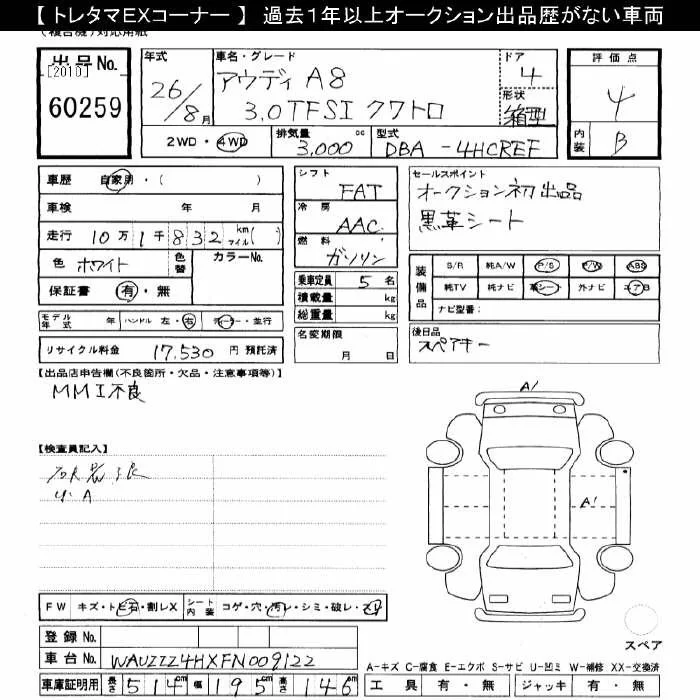 【 トレタマEXコーナー 】 過去1年以上オークション出品歴がない車両
(複合機)対応用紙
出品No.
[2010]
60259
年式
26/8月
車名・グレード
アウディ A8
3.0TFSI クワトロ
ドア
4
形状
箱型
評価点
4
内装
B
2WD・4WD
排気量
3,000 cc
型式
DBA -4HCREF
車歴 自家用・( )
車検 年 月
走行 10万1千832 km マイル( )
色 ホワイト 色替 カラーNo.
保証書 有・無
モデル年式 年 ハンドル 左・右 ディーラー・並行
リサイクル料金 17,530 円 預託済
シフト
FAT
冷房
AAC
燃料
ガソリン
乗車定員 5 名
積載量 kg
総重量 kg
名変期限
月 日
セールスポイント
オークション初出品
黒革シート
装備品
S/R 純A/W P/S P/W ABS
純TV 純ナビ 革シート 外ナビ エアB
ナビ型番:
後日品
スペアキー
【出品店申告欄(不良箇所・欠品・注意事項等)】
MMI不良
【検査員記入】
A
A1
A1
FW キズ・トビ石・割レX シート内装 コゲ・穴・汚レ・シミ・破レ・スレ
登録 No.
車台 No. WAUZZZ4HXFN009122
車庫証明用 長さ 514cm 幅 195cm 高さ 146cm
スペア
A-キズ C-腐食 E-エクボ S-サビ U-凹ミ W-補修 XX-交換済
工具 有・無 ジャッキ 有・無